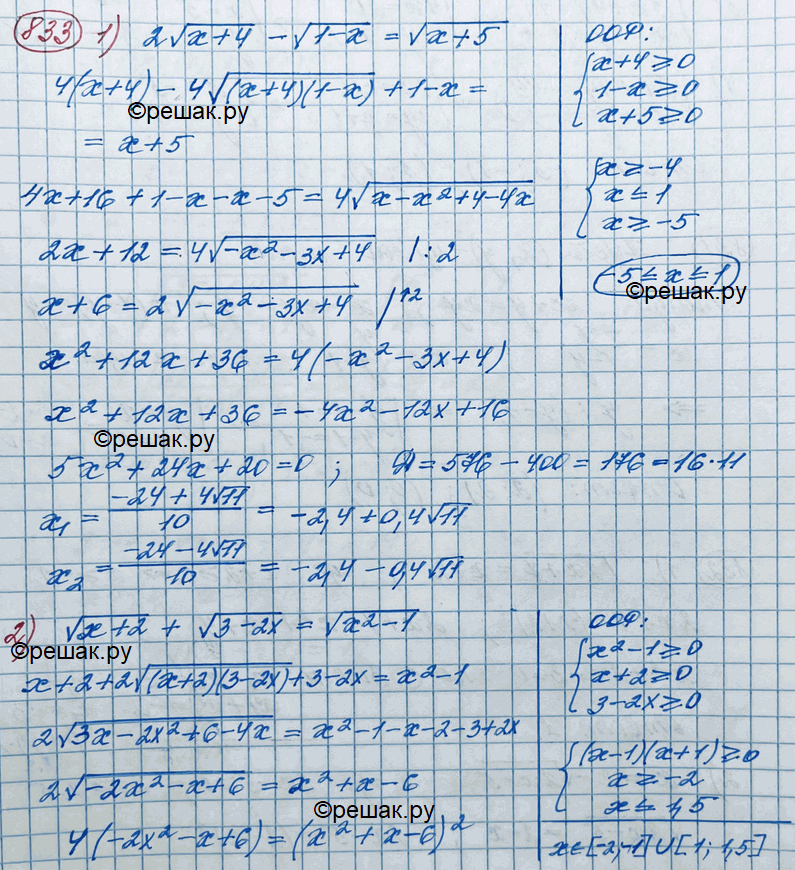 833 1) 2√(x+4) - √(1-x) = √(x+5)
4(x+4) - 4√((x+4)(1-x)) + 1-x =
©решак.ру
= x+5
4x+16+1-x-x-5 = 4√(x-x²+4-4x)
2x+12 = 4√(-x²-3x+4) |:2
x+6 = 2√(-x²-3x+4) /↑2
x²+12x+36 = 4(-x²-3x+4)
x²+12x+36 = -4x²-12x+16
©решак.ру
5x²+24x+20=0 ; Д=576-400=176=16·11
x₁ = (-24+4√11)/10 = -2,4+0,4√11
x₂ = (-24-4√11)/10 = -2,4-0,4√11
ООФ:
{x+4≥0
1-x≥0
x+5≥0
{x≥-4
x≤1
x≥-5
-5≤x≤1
©решак.ру
2) √(x+2) + √(3-2x) = √(x²-1)
©решак.ру
x+2+2√((x+2)(3-2x))+3-2x = x²-1
2√(3x-2x²+6-4x) = x²-1-x-2-3+2x
2√(-2x²-x+6) = x²+x-6
©решак.ру
4(-2x²-x+6) = (x²+x-6)²
ООФ:
{x²-1≥0
x+2≥0
3-2x≥0
{(x-1)(x+1)≥0
x≥-2
x≤1,5
x∈[-2;-1]∪[1; 1,5]